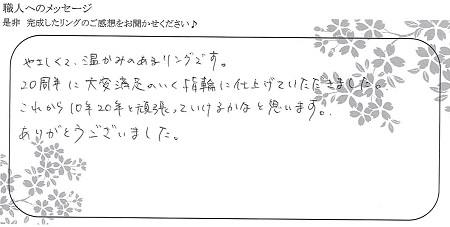 職人へのメッセージ
是非 完成したリングのご感想をお聞かせください♪
やさしくて、温かみのあるリングです。
20周年に大変満足のいく指輪に仕上げていただきました。
これから10年20年と頑張っていけるかなと思います。
ありがとうございました。